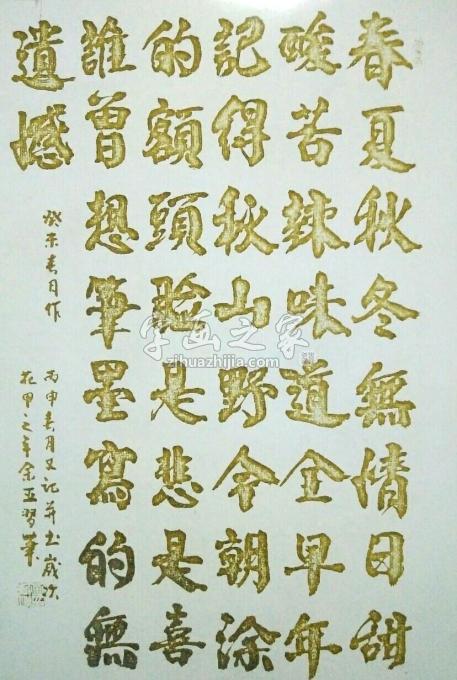 春夏秋冬無情日甜
酸苦辣味道全早年
記得秋山野今朝涂
的額頭脸是悲是喜
誰曾想筆墨寫的無
遺憾
癸未春月作
丙申春月又記并书歲次
花甲之年余五習筆
字画之家
zihuazhijia.com